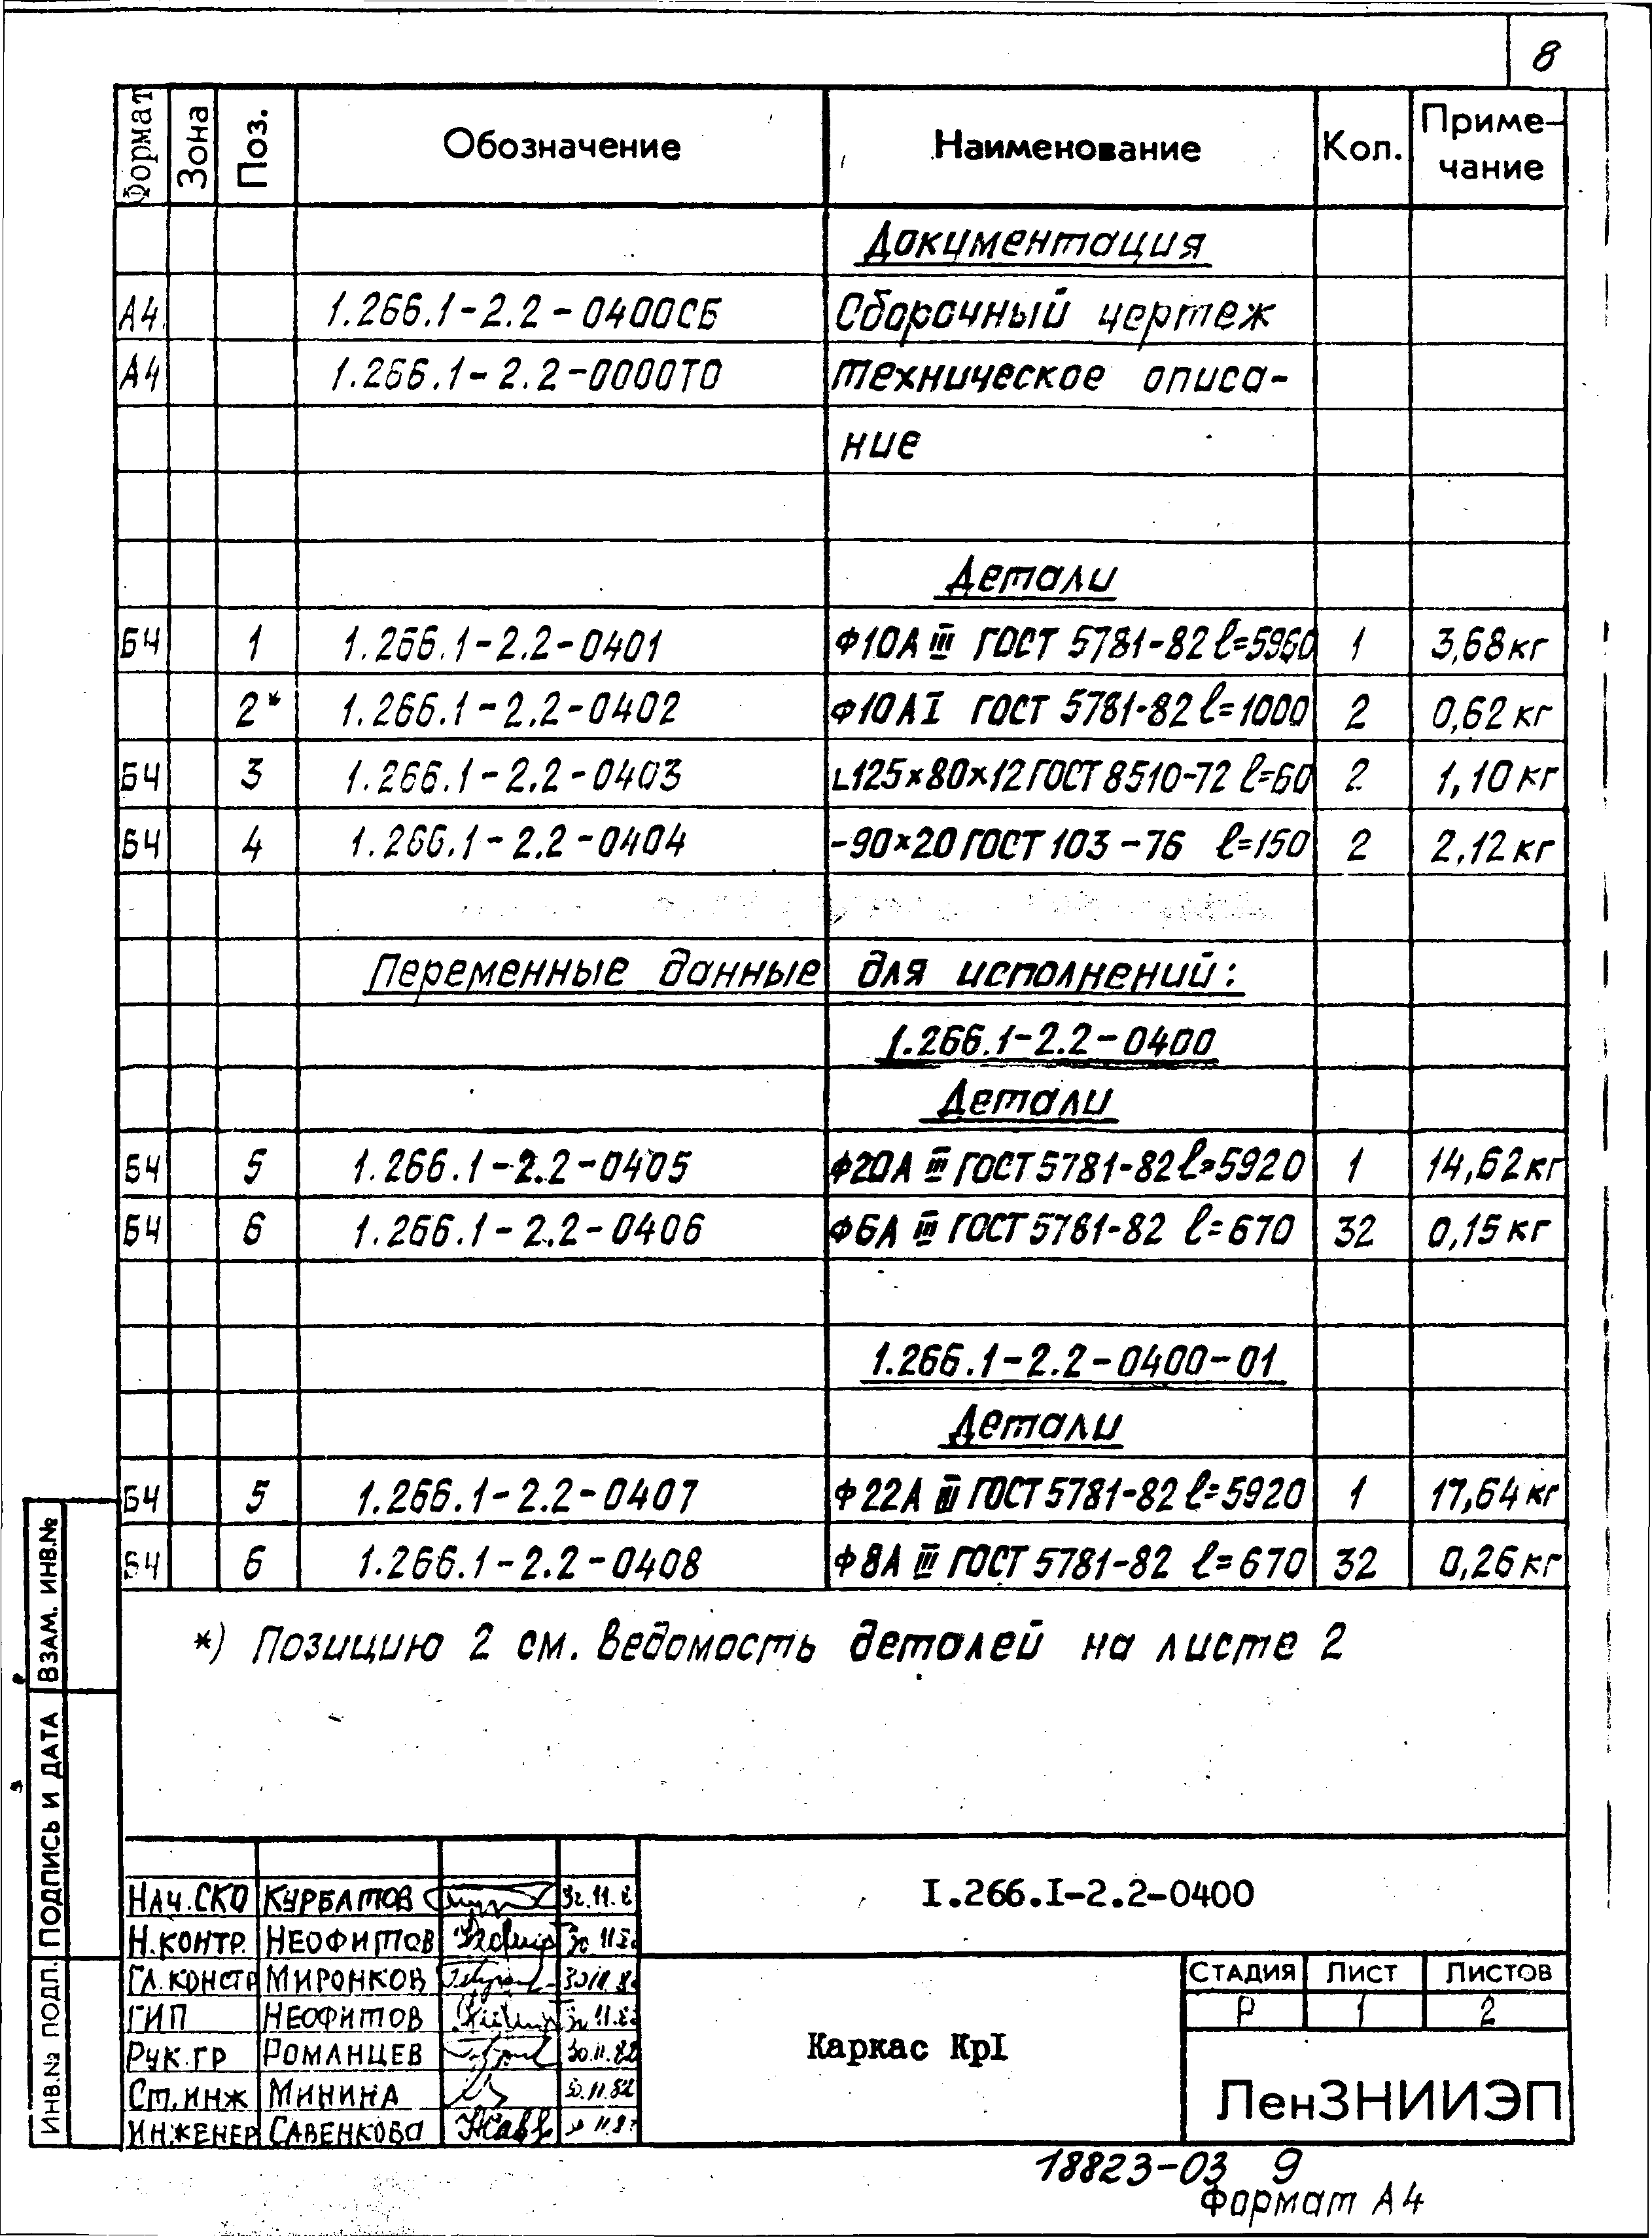 8
Формат Зона Поз. Обозначение Наименование Кол. Приме-
чание
Документация
А4 1.266.1-2.2-0400СБ Сборочный чертеж
А4 1.266.1-2.2-0000ТО Техническое описа-
ние
Детали
БЧ 1 1.266.1-2.2-0401 Ф10АIII ГОСТ 5781-82 l=5960 1 3,68кг
2* 1.266.1-2.2-0402 Ф10АI ГОСТ 5781-82 l=1000 2 0,62кг
БЧ 3 1.266.1-2.2-0403 L125×80×12 ГОСТ 8510-72 l=60 2 1,10кг
БЧ 4 1.266.1-2.2-0404 -90×20 ГОСТ 103-76 l=150 2 2,12кг
Переменные данные для исполнений:
1.266.1-2.2-0400
Детали
БЧ 5 1.266.1-2.2-0405 Ф20АIII ГОСТ 5781-82 l=5920 1 14,62кг
БЧ 6 1.266.1-2.2-0406 Ф6АIII ГОСТ 5781-82 l=670 32 0,15кг
1.266.1-2.2-0400-01
Детали
БЧ 5 1.266.1-2.2-0407 Ф22АIII ГОСТ 5781-82 l=5920 1 17,64кг
БЧ 6 1.266.1-2.2-0408 Ф8АIII ГОСТ 5781-82 l=670 32 0,26кг
*) Позицию 2 см. Ведомость деталей на листе 2
ИНВ.№ ПОДЛ. ПОДПИСЬ И ДАТА ВЗАМ. ИНВ.№
НАЧ.СКО КУРБАТОВ
Н.КОНТР. НЕОФИТОВ
ГЛ.КОНСТР МИРОНКОВ
ГИП НЕОФИТОВ
РУК.ГР РОМАНЦЕВ 30.11.82
СТ.ИНЖ МИНИНА 30.11.82
ИНЖЕНЕР САВЕНКОВА
I.266.I-2.2-0400
Каркас КрI
СТАДИЯ ЛИСТ ЛИСТОВ
Р 1 2
ЛенЗНИИЭП
18823-03 9
Формат А4